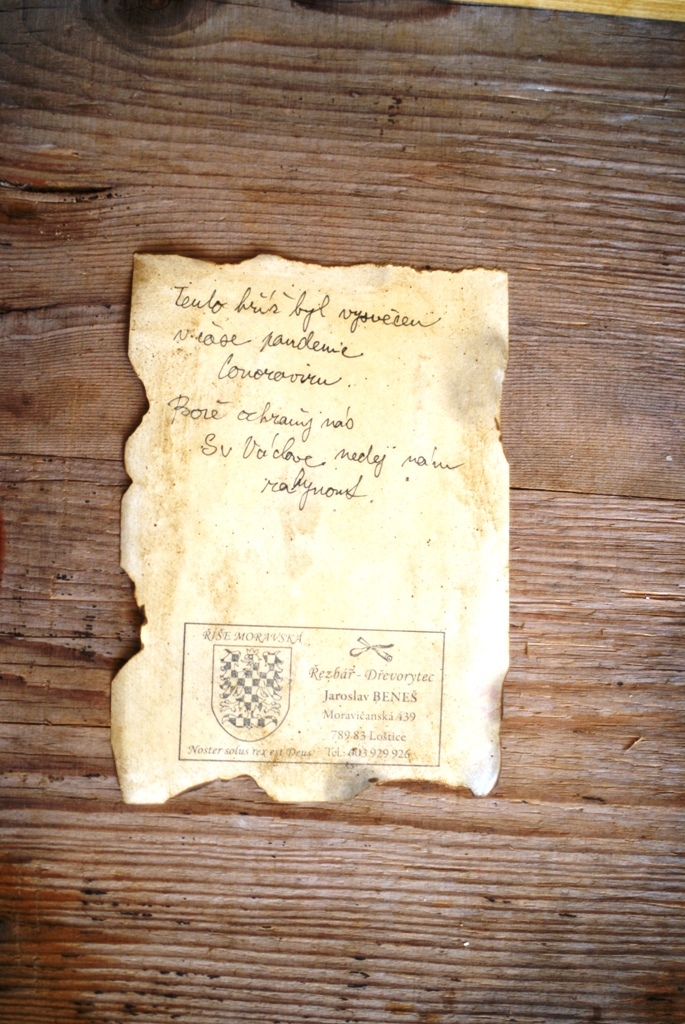 Tento kříž byl vysvěcen
v čase pandemie
Conoraviru.
Bože ochraňuj nás
Sv Václave nedej nám
zahynout.
ŘÍŠE MORAVSKÁ
Noster solus rex est Deus
Řezbář - Dřevorytec
Jaroslav BENEŠ
Moravičanská 439
789 83 Loštice
Tel.: 603 929 926